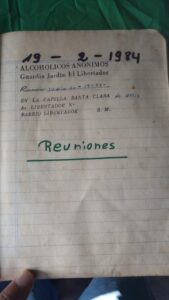 19 - 2 - 1984
ALCOHOLICOS ANONIMOS
Guardia Jardín El Libertador
EN LA CAPILLA SANTA CLARA de ASIS
Av LIBERTADOR Nº
BARRIO LIBERTADOR S. M.
Reuniones